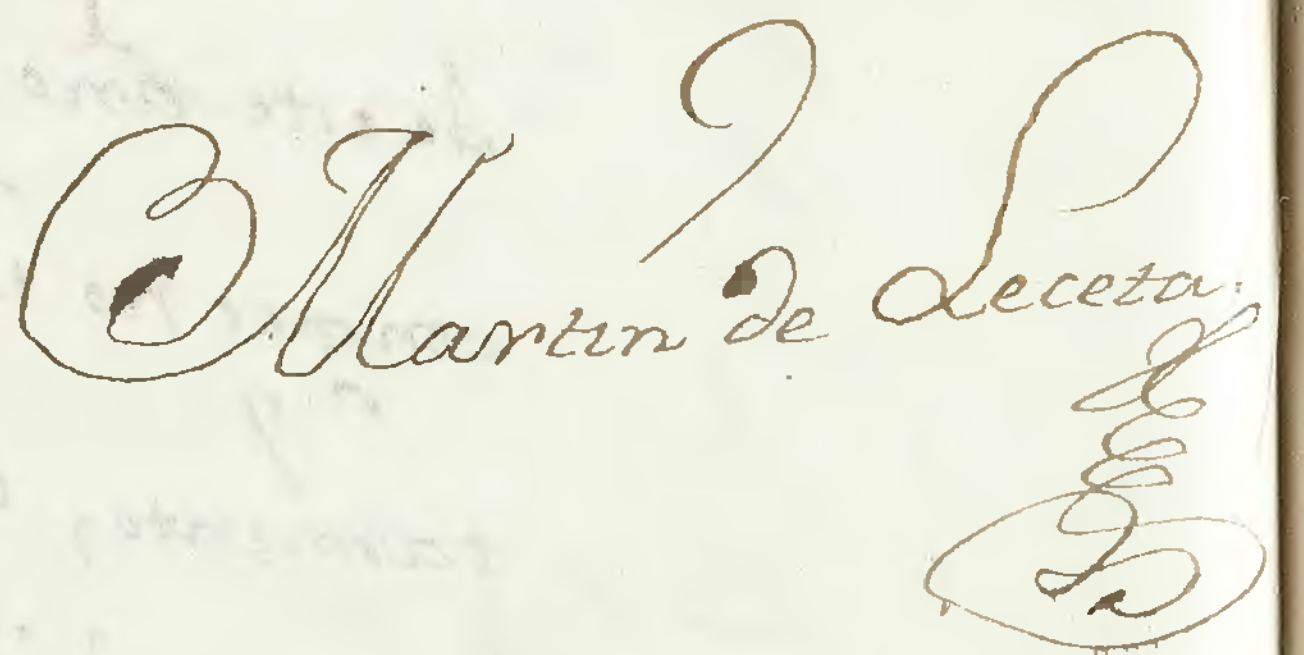 Martin de Leceta.